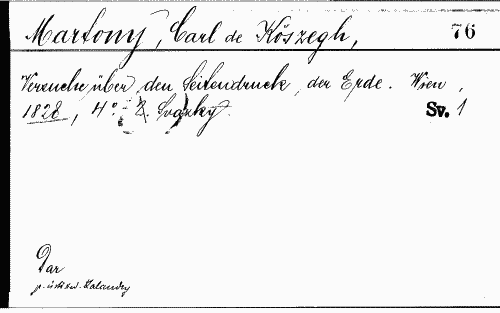 Martony, Carl de Köszegh, 76
Versuche über den Seitendruck der Erde. Wien,
1828, 4°. 2. Svazky. Sv. 1
Dar